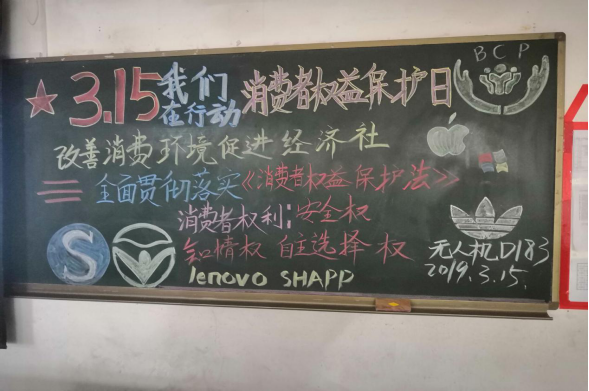 BCP
3.15 我们在行动 消费者权益保护日
改善消费环境促进经济社
全面贯彻落实《消费者权益保护法》
消费者权利:安全权
知情权 自主选择权
lenovo SHAPP
S
无人机D183
2019.3.15.